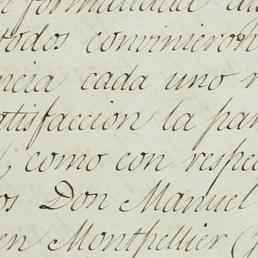 formalidad
todos convinieron
ncia cada uno
atisfaccion la par
, como con respec
os Don Manuel
en Montpellier (